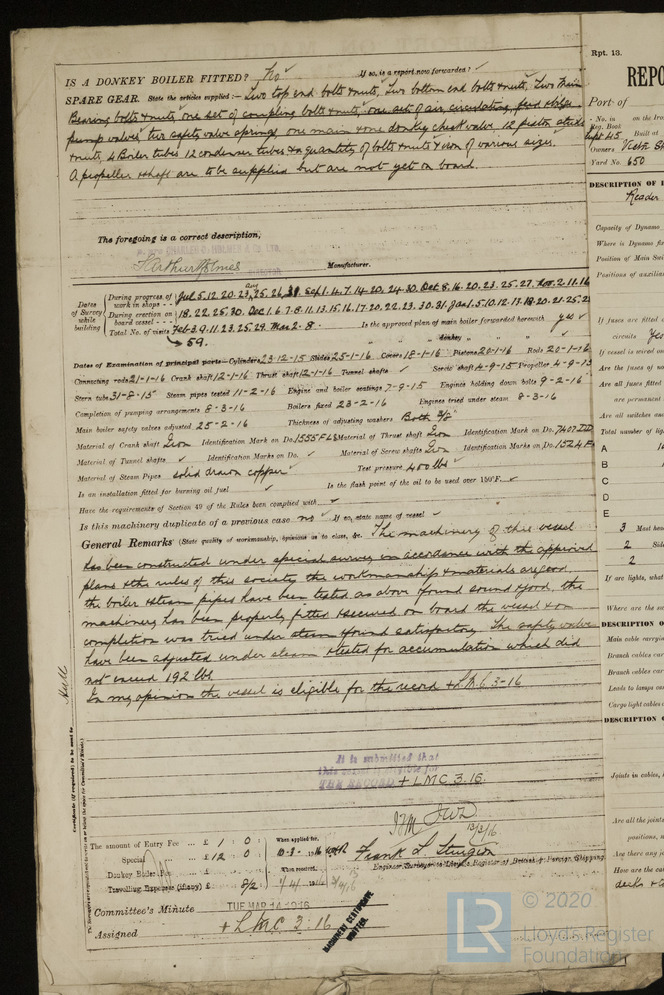 IS A DONKEY BOILER FITTED? No If so, is a report now forwarded?
SPARE GEAR. State the articles supplied:- Two top end bolts & nuts, Two bottom end bolts & nuts, Two Main
Bearing bolts & nuts, one set of coupling bolts & nuts, one set of air, circulating, feed & bilge
pump valves, two safety valve springs, one main & one donkey check valve, 12 piston studs
& nuts, 4 Boiler tubes 12 condenser tubes & a quantity of bolts & nuts & iron of various sizes.
A propeller & shaft are to be supplied but are not yet on board.
The foregoing is a correct description,
Manufacturer.
Dates of Survey while building
During progress of work in shops - - Jul 5. 12. 20. 23. Aug 25. 26. 31. Sep 1. 4. 7. 14. 20. 24. 30. Oct 8. 16. 20. 23. 25. 27. Nov 2. 11. 16
During erection on board vessel - - - 18. 22. 25. 30. Dec 1. 6. 7. 8. 11. 13. 15. 16. 17. 20. 22. 23. 30. 31. Jan 1. 5. 10. 12. 13. 18. 20. 21. 25.
Total No. of visits Feb 3. 9. 11. 23. 25. 29. Mar 2. 8. Is the approved plan of main boiler forwarded herewith yes
59. donkey
Dates of Examination of principal parts—Cylinders 23-12-15 Slides 25-1-16 Covers 18-1-16 Pistons 20-1-16 Rods 20-1-16
Connecting rods 21-1-16 Crank shaft 12-1-16 Thrust shaft 12-1-16 Tunnel shafts Screw shaft 4-9-15 Propeller 4-9-15
Stern tube 31-8-15 Steam pipes tested 11-2-16 Engine and boiler seatings 7-9-15 Engines holding down bolts 9-2-16
Completion of pumping arrangements 8-3-16 Boilers fixed 23-2-16 Engines tried under steam 8-3-16
Main boiler safety valves adjusted 25-2-16 Thickness of adjusting washers Both 3/8"
Material of Crank shaft Iron Identification Mark on Do. 1555 Material of Thrust shaft Iron Identification Mark on Do. 7407
Material of Tunnel shafts Identification Marks on Do. Material of Screw shafts Iron Identification Marks on Do. 1524
Material of Steam Pipes solid drawn copper Test pressure 400 lbs
Is an installation fitted for burning oil fuel Is the flash point of the oil to be used over 150°F.
Have the requirements of Section 49 of the Rules been complied with
Is this machinery duplicate of a previous case no If so, state name of vessel
General Remarks (State quality of workmanship, opinions as to class, &c. The machinery of this vessel
has been constructed under special survey in accordance with the approved
plans & the rules of this society, the workmanship & materials are good.
the boiler & steam pipes have been tested as above & found sound & good, the
machinery has been properly fitted & secured on board the vessel & on
completion was tried under steam & found satisfactory. The safety valves
have been adjusted under steam & tested for accumulation which did
not exceed 192 lbs
In my opinion the vessel is eligible for the record + LMC 3-16
Hull
Certificate (if required) to be sent to
It is submitted that
this vessel is eligible for
THE RECORD + LMC 3.16.
13/3/16
The amount of Entry Fee ... £ 1 : 0 : When applied for,
Special ... £ 12 : 0 :
Donkey Boiler Fee ... £ : : When received,
Travelling Expenses (if any) £ : 8/2
Frank L Sturgeon
Engineer Surveyor to Lloyd's Register of British & Foreign Shipping.
Committee's Minute TUE MAR 14 1916
Assigned + LMC 3.16
MACHINERY CERTIFICATE
WRITTEN.
Rpt. 13.
REPO
Port of
No. in Reg. Book on the Iro
Built at
Owners
Yard No. 650
DESCRIPTION OF
Reader
Capacity of Dynamo
Where is Dynamo
Position of Main Swi
Positions of auxilia
If fuses are fitted
circuits Yes
If vessel is wired on
Are the fuses of
Are all fuses fitted
are permanent
Are all switches an
Total number of lig
A
B
C
D
E
3 Mast head
2 Sid
2
If arc lights, what
Where are the sw
DESCRIPTION O
Main cable carryin
Branch cables car
Branch cables car
Leads to lamps
Cargo light cables
DESCRIPTION
Joints in cables,
Are all the joints
positions,
Are there any jo
How are the ca
decks
LR
© 2020
Lloyd's Register
Foundation